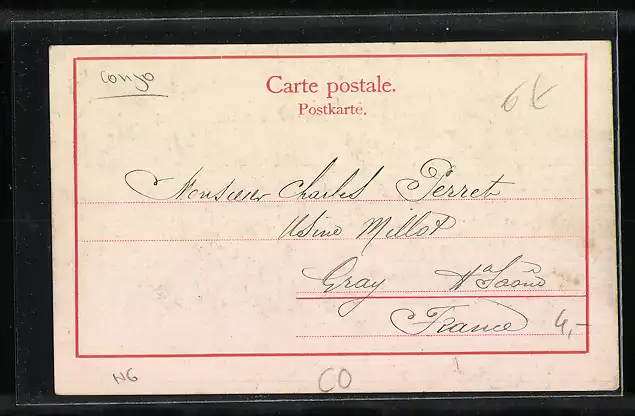 Congo
Carte postale.
Postkarte.
6€
Monsieur Charles Perret
Usine Millot
Gray Hte Saône
France
4,-
NG
CO
1